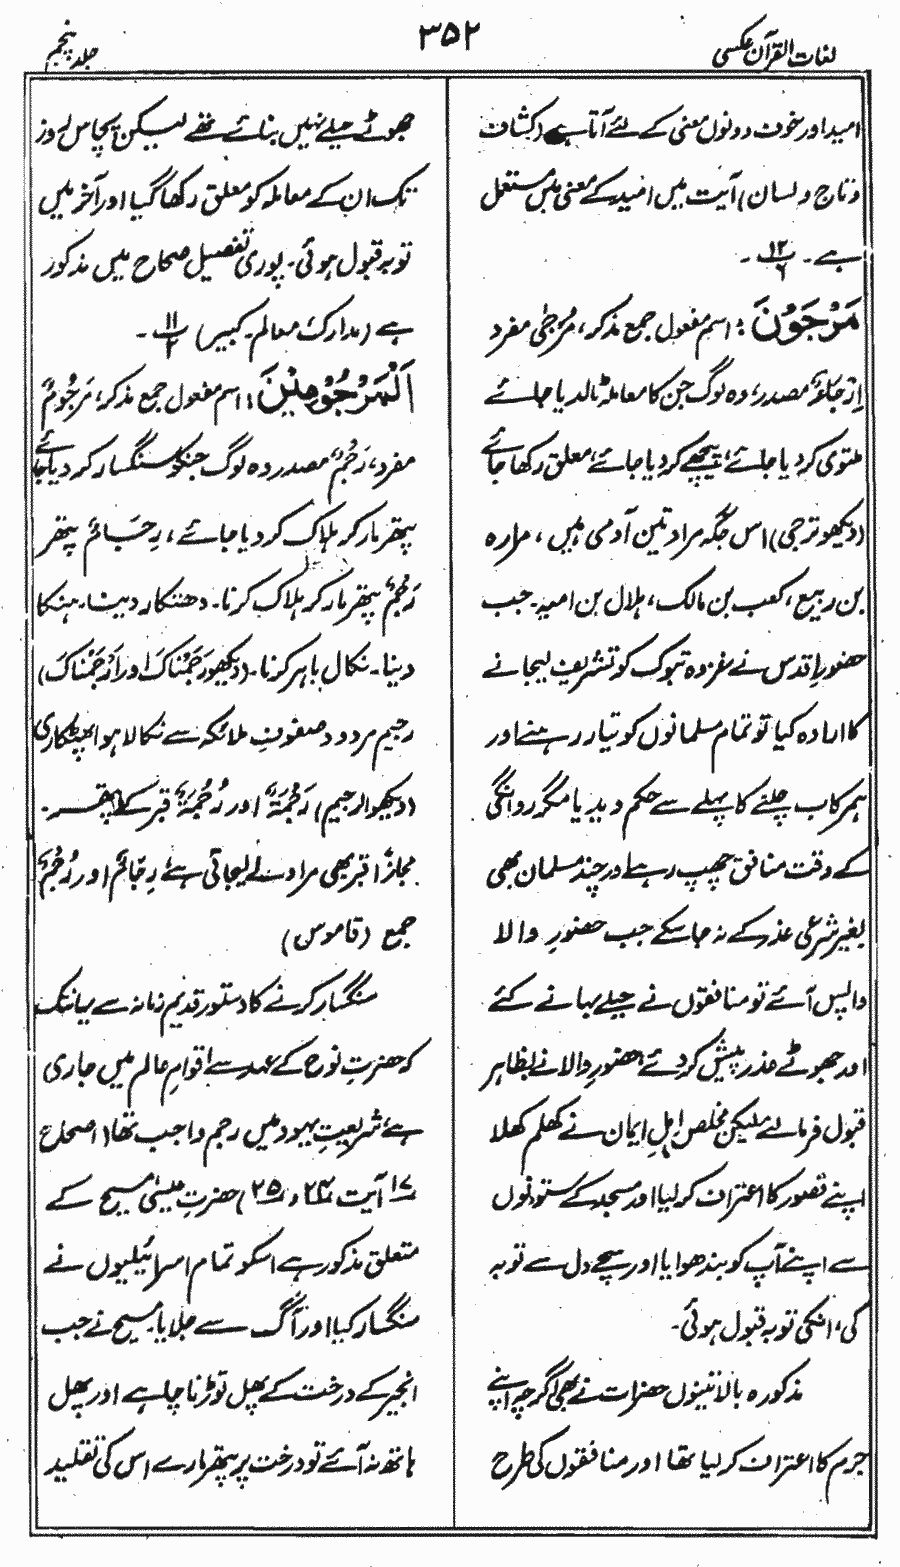 لغات القرآن عکسی
۳۵۲
جلد پنجم
امید اور خوف دونوں معنی کے لئے آتا ہے (کشاف
و تاج و لسان) آیت میں امید کے معنی میں مستعمل
ہے۔ ۱۲/۶ ۔
مَرْجَوْنَ: اسم مفعول جمع مذکر، مُرْجیٰ مفرد
اِرْجَاءٌ مصدر، وہ لوگ جن کا معاملہ ٹالدیا جائے
ملتوی کر دیا جائے، پیچھے کر دیا جائے، معلق رکھا جائے
(دیکھو ترجی) اس جگہ مراد تین آدمی ہیں، مرارہ
بن ربیع، کعب بن مالک، ہلال بن امیہ۔ جب
حضور اقدس نے غزوہ تبوک کو تشریف لیجانے
کا ارادہ کیا تو تمام مسلمانوں کو تیار رہنے اور
ہمرکاب چلنے کا پہلے سے حکم دیدیا مگر روانگی
کے وقت منافق چھپ رہے اور چند مسلمان بھی
بغیر شرعی عذر کے نہ جاسکے جب حضورِ والا
واپس آئے تو منافقوں نے حیلے بہانے کئے
اور جھوٹے عذر پیش کر دئے، حضورِ والا نے بظاہر
قبول فرمالئے لیکن مخلص اہلِ ایمان نے کھلم کھلا
اپنے قصور کا اعتراف کر لیا اور مسجد کے ستونوں
سے اپنے آپ کو بندھوایا اور سچے دل سے توبہ
کی، انکی توبہ قبول ہوئی۔
مذکورہ بالا تینوں حضرات نے بھی اگرچہ اپنے
جرم کا اعتراف کر لیا تھا اور منافقوں کی طرح
جھوٹے حیلے نہیں بنائے تھے لیکن پچاس روز
تک ان کے معاملہ کو معلق رکھا گیا اور آخر میں
توبہ قبول ہوئی۔ پوری تفصیل صحاح میں مذکور
ہے (مدارک، معالم۔ کبیر) ۱۱/۲ ۔
اَلْمَرْجُوْمِیْنَ: اسم مفعول جمع مذکر، مَرْجُوْمٌ
مفرد، رَجْمٌ مصدر وہ لوگ جنکو سنگسار کر دیا جائے
پتھر مار کر ہلاک کر دیا جائے، رِجَامٌ پتھر
رَجْمٌ پتھر مار کر ہلاک کرنا۔ دھتکار دینا۔ ہنکا
دینا۔ نکال باہر کرنا۔ (دیکھو رَجَمْنَاکَ اور اَرْجُمَنَّاکَ)
رجیم مردود صفوفِ ملائکہ سے نکالا ہوا پھٹکاری
(دیکھو الرجیم) رَجْمَۃٌ اور رُجْمَۃٌ قبر کے پتھر۔
مجازًا قبر بھی مراد لے لیجاتی ہے، رِجَامٌ اور رُجُمٌ
جمع (قاموس)
سنگسار کرنے کا دستور قدیم زمانہ سے یہانتک
کہ حضرتِ نوح کے عہد سے اقوامِ عالم میں جاری
ہے، شریعتِ یہود میں رجم واجب تھا (اصحاح
۱۷ آیت ۲۴ و ۲۵) حضرتِ عیسیٰ مسیح کے
متعلق مذکور ہے اسکو تمام اسرائیلیوں نے
سنگسار کیا اور آگ سے جلایا۔ مسیح نے جب
انجیر کے درخت کے پھل توڑنا چاہے اور پھل
ہاتھ نہ آئے تو درخت پر پتھر مارے اس کی تقلید